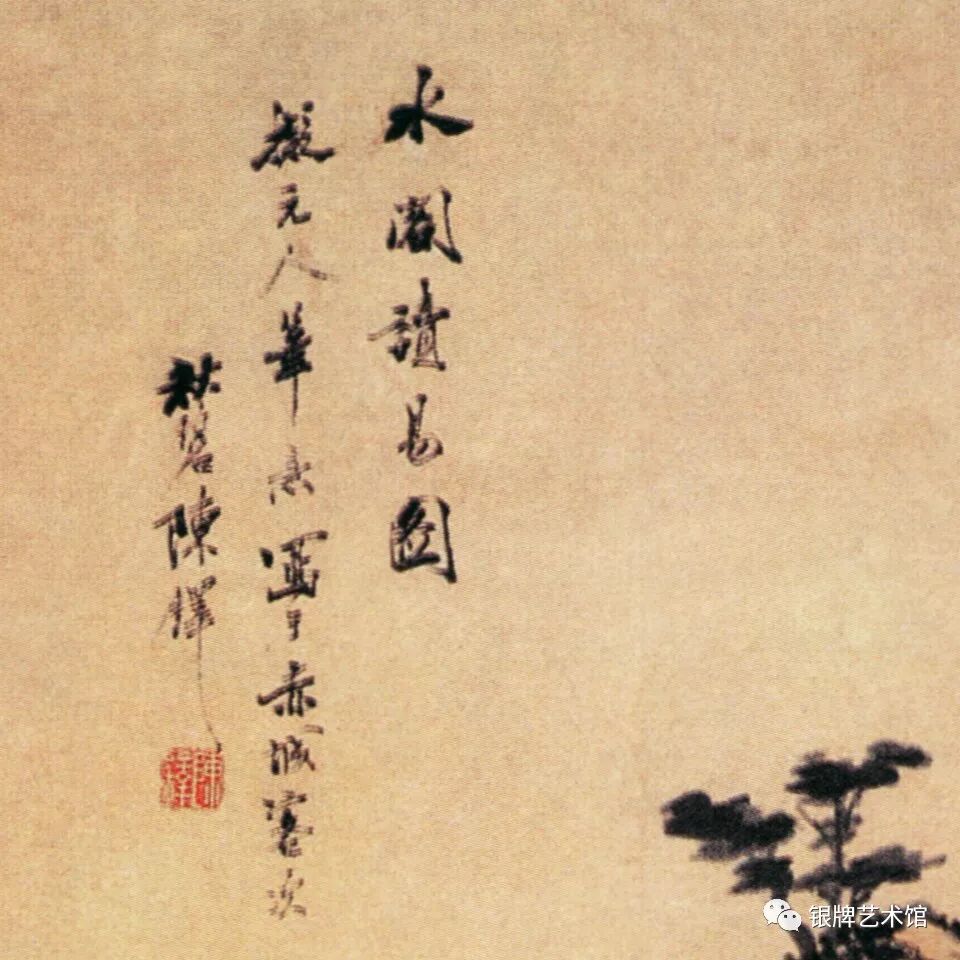 水閣讀易圖
擬元人筆意寫于赤城客次
秋岩陳鐸
银牌艺术馆